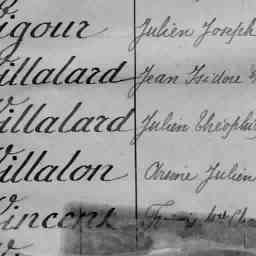 igour Julien Joseph
illalard Jean Isidore
Villalard Julien Théophile
Villalon Arsène Julien
Vincent